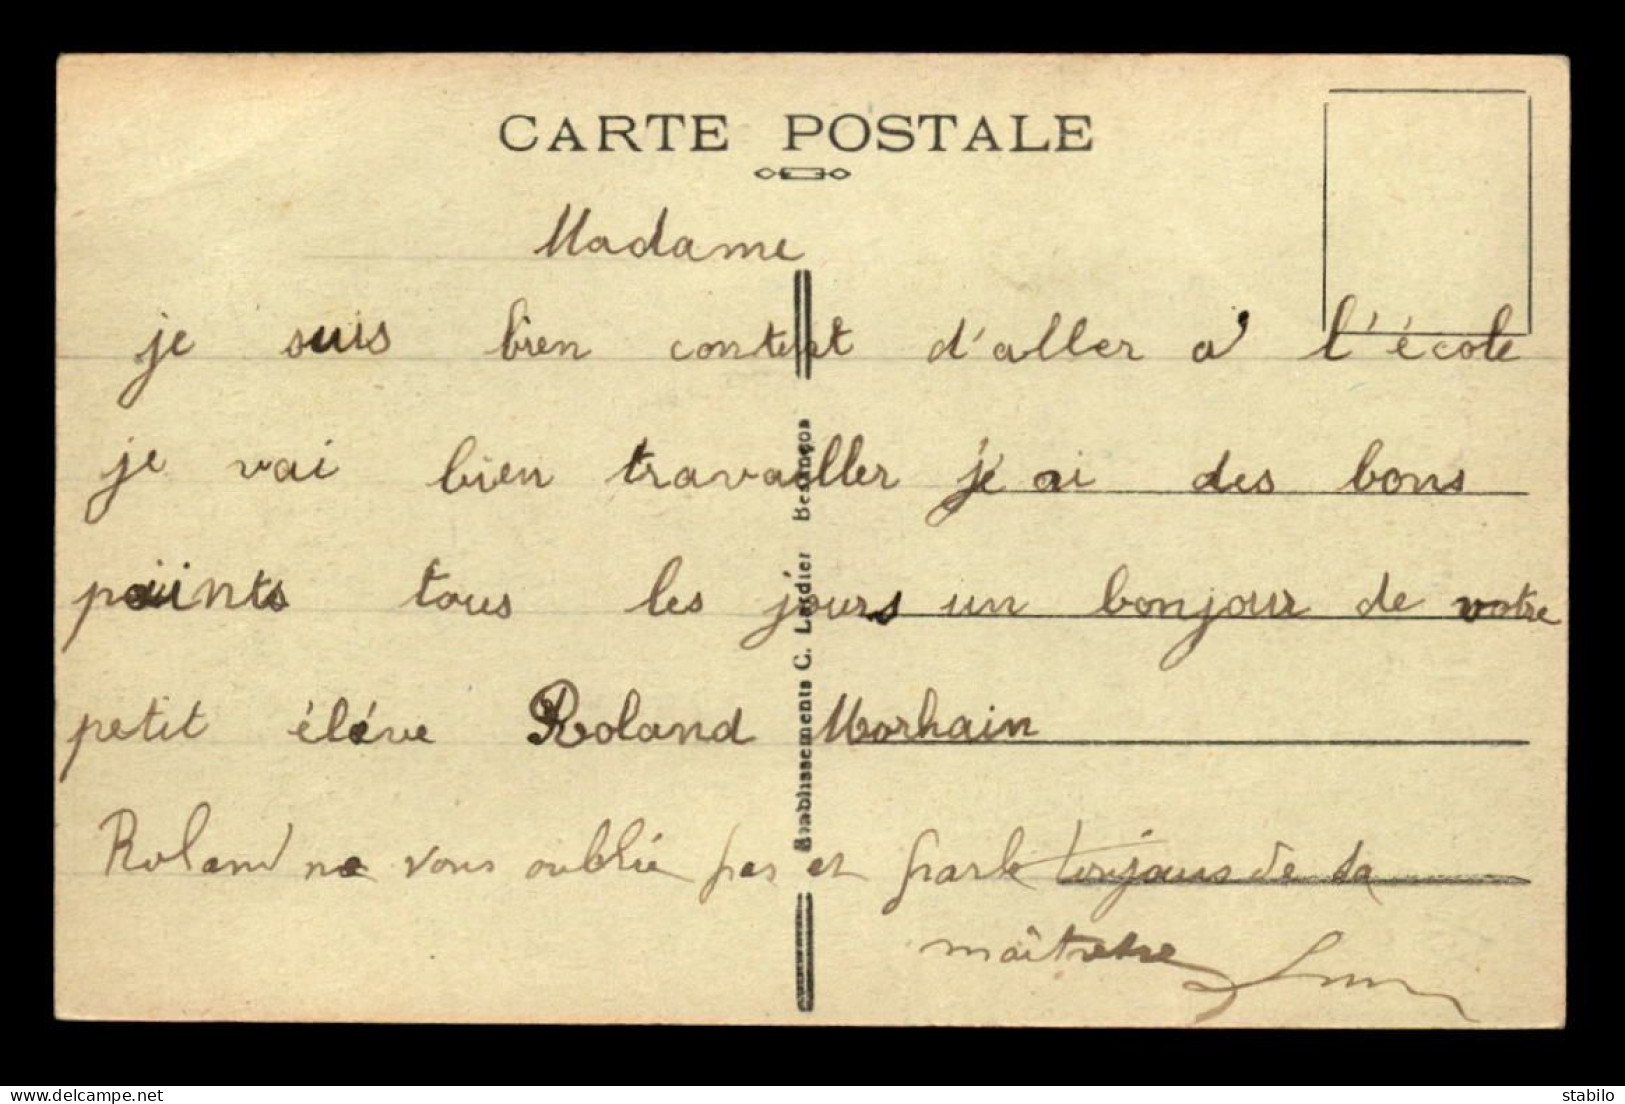 CARTE POSTALE
Madame
je suis bien content d'aller a' l'école
je vai bien travailler j'ai des bons
points tous les jours un bonjour de votre
petit éléve Roland Morhain
Roland ne vous oublie pas et parle toujours de sa
maîtresse
Etablissements C. Lardier Besançon
delcampe.net
stabilo